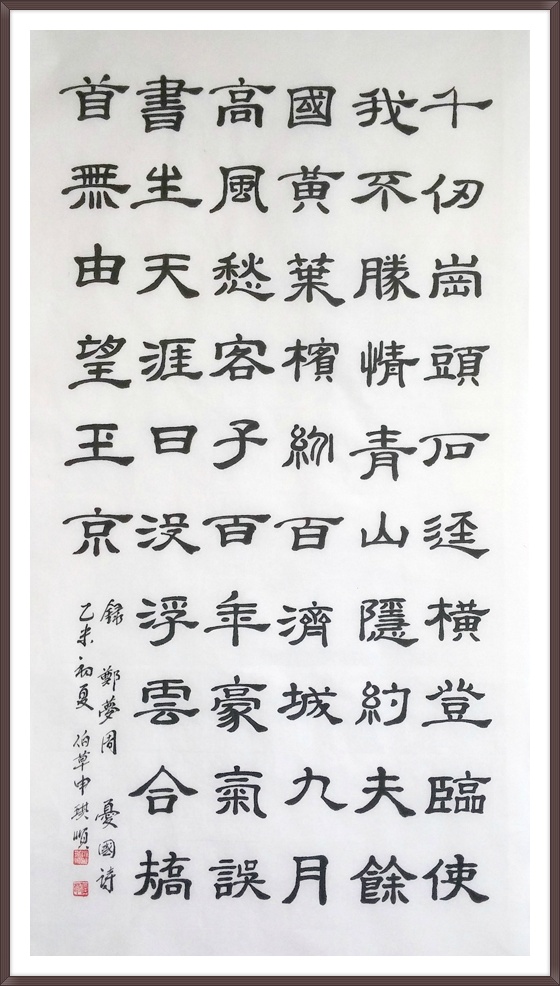 千仞崗頭石逕橫登臨使
我不勝情青山隱約夫餘
國黃葉檳紛百濟城九月
高風愁客子百年豪氣誤
書生天涯日沒浮雲合矯
首無由望玉京
錄 鄭夢周 憂國詩
乙未初夏 伯草申順